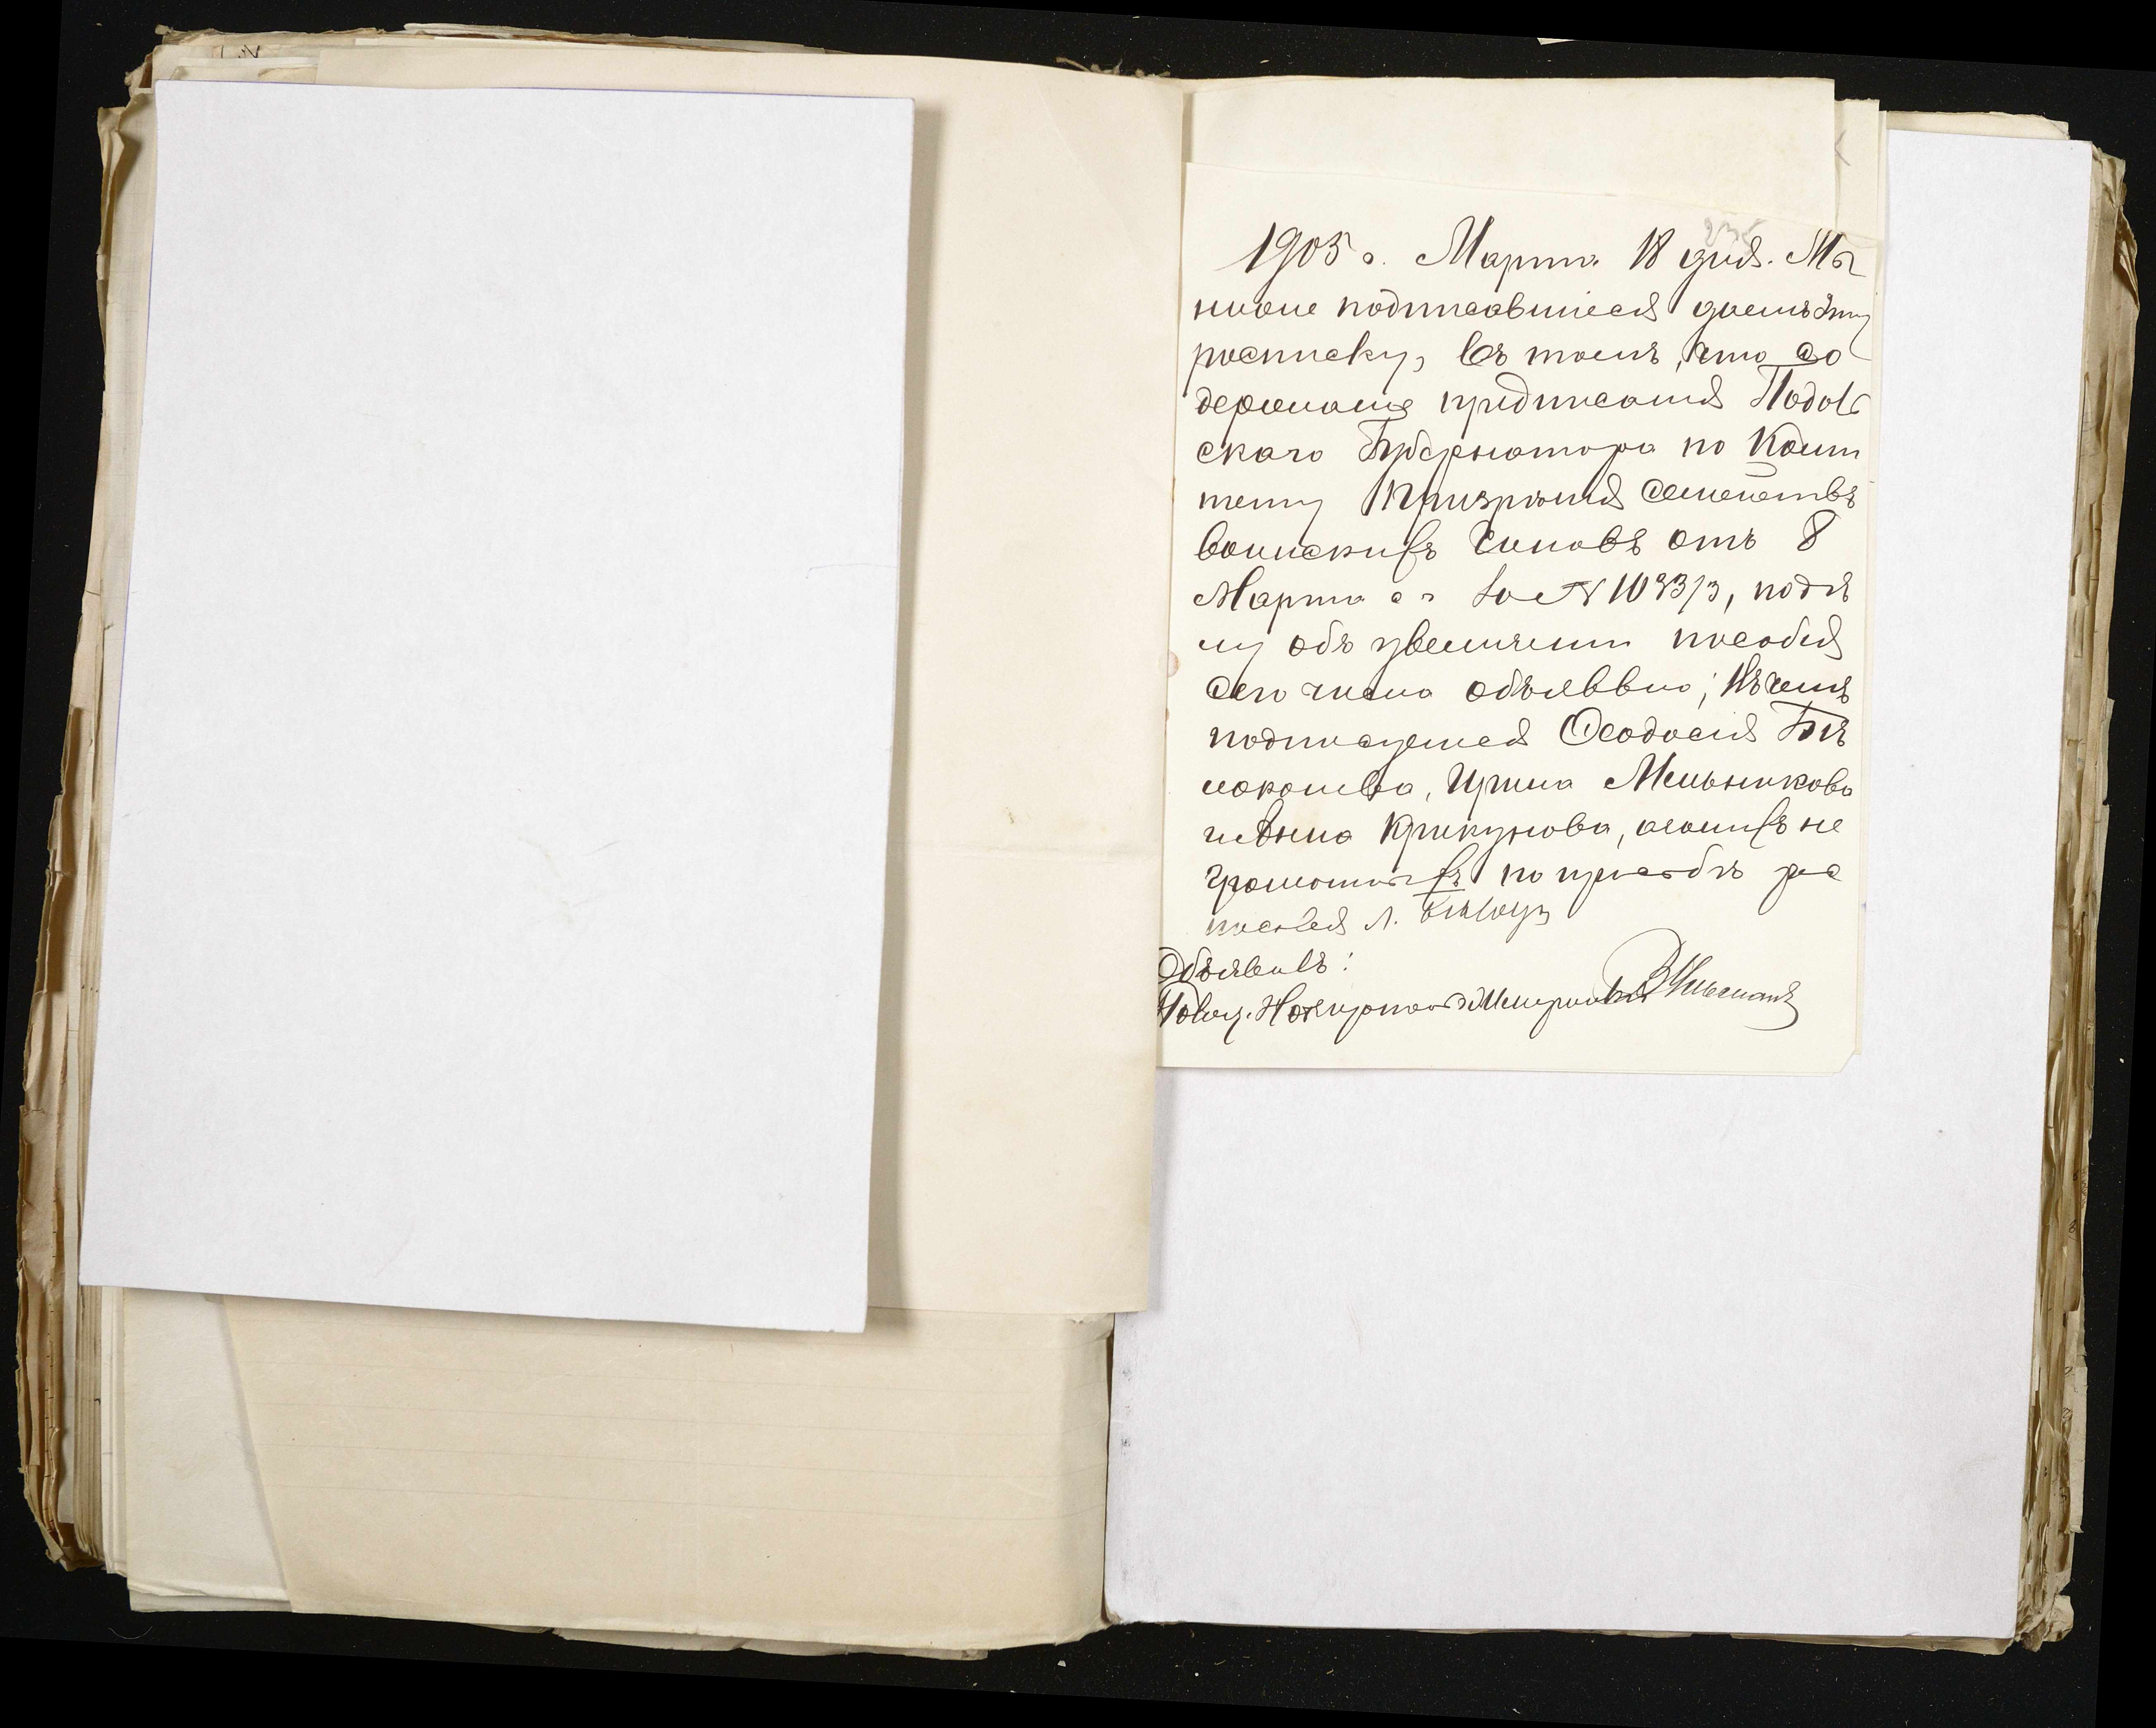 1905 г. Марта 18 дня. Мы
ниже подписавшiеся даемъ эту
росписку, въ томъ, что со
держанiе предписанiя Подоль
скаго Губернатора по Коми
тету Призрѣнiя Семействъ
воинскихъ Чиновъ отъ 8
Марта с г за № 1033/3, по дѣ
лу объ увеличенiи пособiя
сего числа объявлено; въ чемъ
подписуемся Ѳеодосiя Бѣ
локонева, Ирина Мельникова
Крикунова, а за нихъ не
грамотныхъ по просьбѣ рас
писался Л.
Объявилъ:
Полиц.